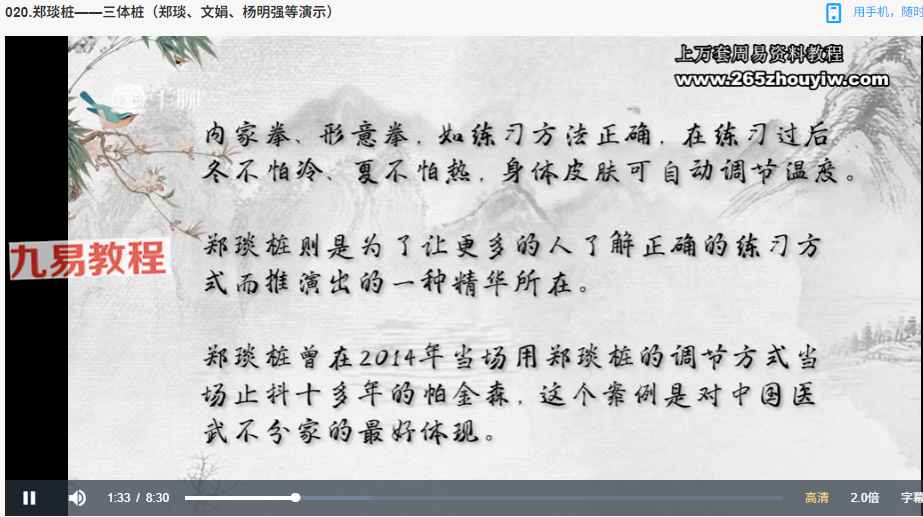 020.郑琰桩——三体桩（郑琰、文娟、杨明强等演示）
用手机，随时
上万套周易资料教程
www.265zhouyiw.com
千聊
内家拳、形意拳，如练习方法正确，在练习过后
冬不怕冷、夏不怕热，身体皮肤可自动调节温度。
九易教程
郑琰桩则是为了让更多的人了解正确的练习方
式而推演出的一种精华所在。
郑琰桩曾在2014年当场用郑琰桩的调节方式当
场止抖十多年的帕金森，这个案例是对中国医
武不分家的最好体现。
1:33 / 8:30
高清
2.0倍
字幕